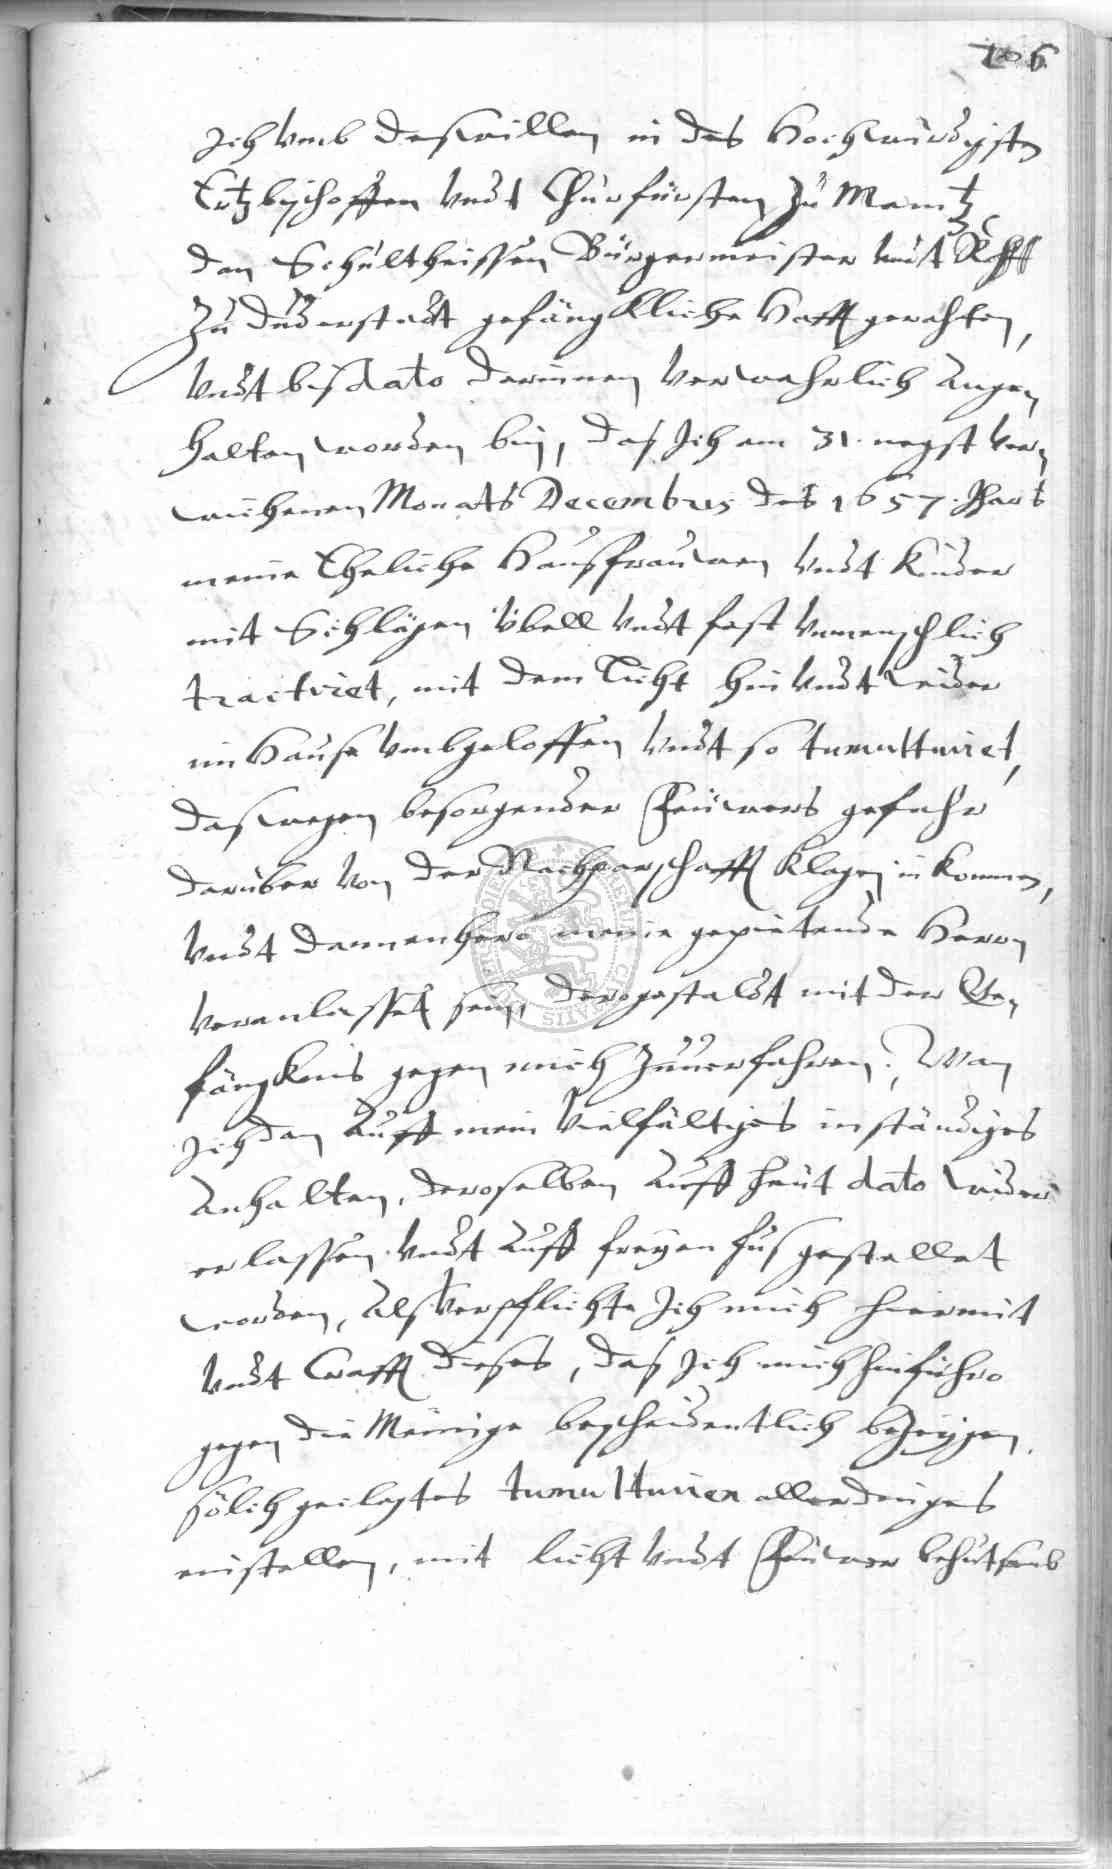 106
Ich vmb deßwillen in des Hochwürdigsten
Ertzbischoffen vndt Churfürsten zu Maintz
den Schultheissen Bürgermeister vndt Rhatß
Zu Duderstadt gefängkliche Hafft gerahten,
vndt biß dato darinnen verwahrlich ange-
halten worden bin, daß Ich am 31. negst ver-
wichenen Monats Decembris des 1657. Jhars
meine Eheliche Haußfrauwen vndt Kinder
mit Schlägen übell vndt fast vnmenschlich
tractiret, mit dem Licht hin vndt wider
im Hause vmbgeloffen vndt so tumultuiret,
das wegen besorgender Feüwers gefahr
darüber von der Nachparschafft Klagen inkommen,
vndt dannenhero meine gepietende Herrn
veranlasset sein, derogestaldt mit der Ge-
fängknis gegen mich zuuerfahren; Wan
Ich dan auff mein vielfältiges inständiges
Anhalten, deroselben auff heut dato wider
erlassen vndt auff freyen fuß gestellet
worden, Alß verpflichte Ich mich hiermit
vndt Crafft dieses, daß Ich mich hinführo
gegen die Meinige bescheidentlich bezeigen,
solch geclagtes tumultuiren allerdinges
einstellen, mit licht vndt Feüwer behutsamb